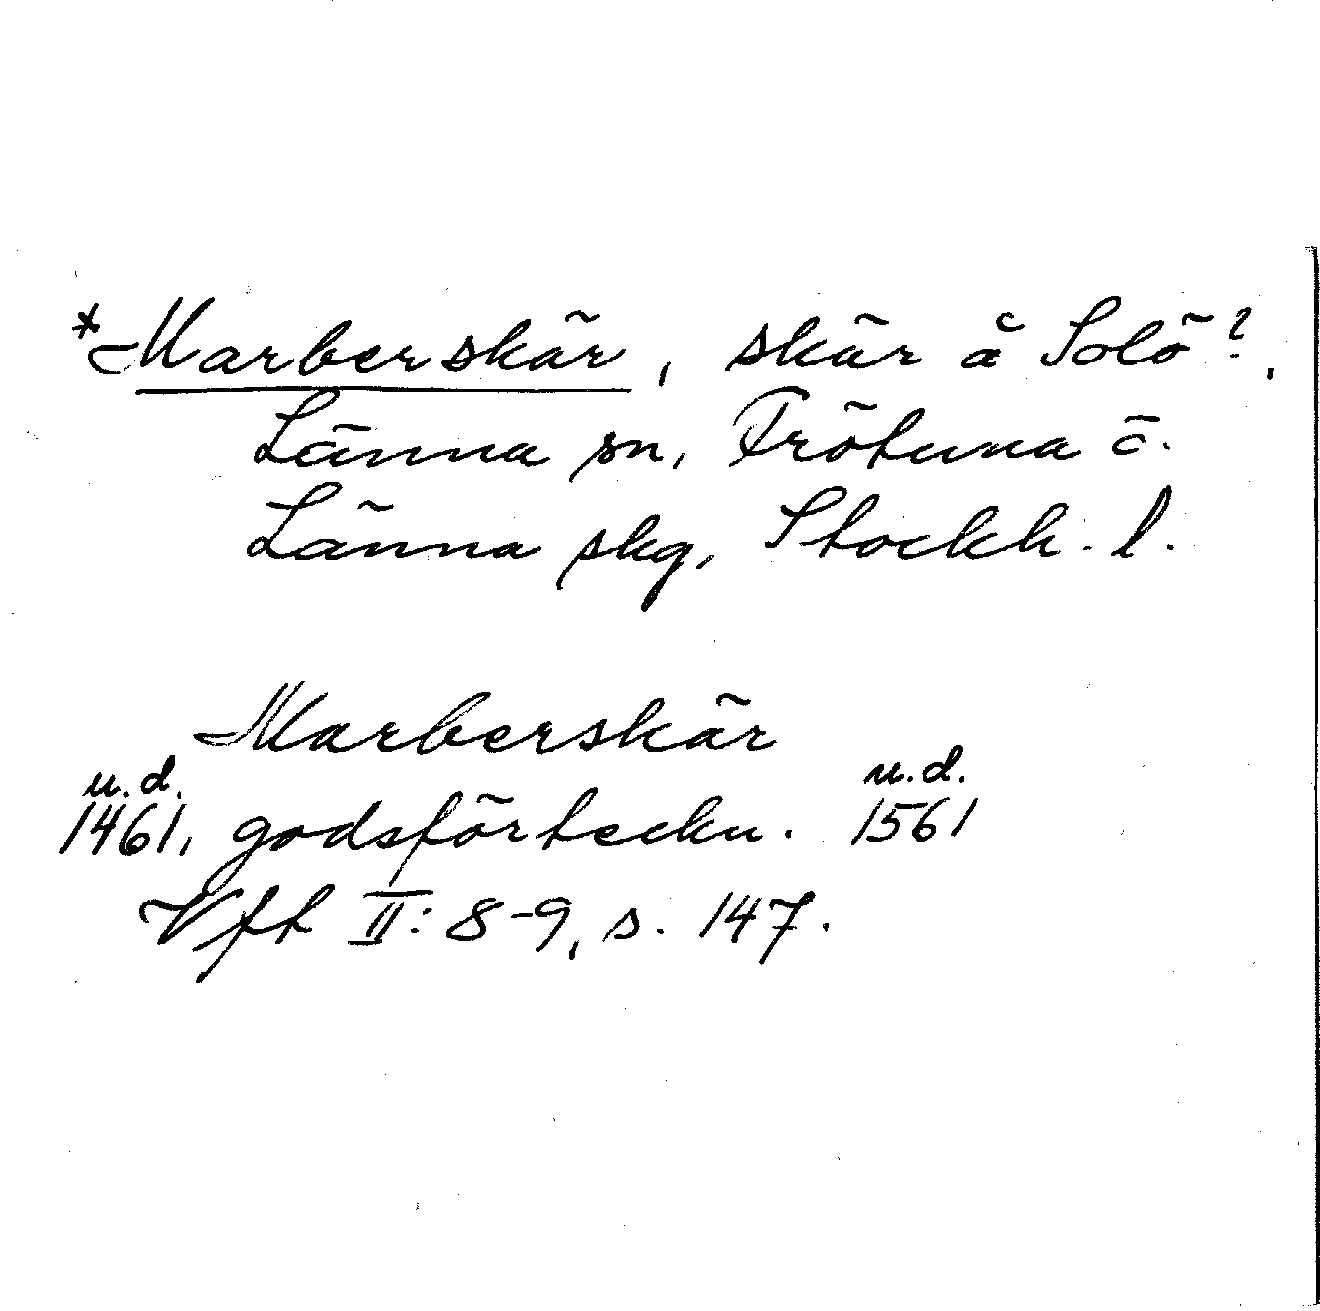 *Marberskär, skär å Solö?,
Länna sn, Frötuna o.
Länna skg, Stockh. l.
Marberskär
u.d. u.d.
1461, godsförteckn. 1561
Vft II: 8-9, s. 147.